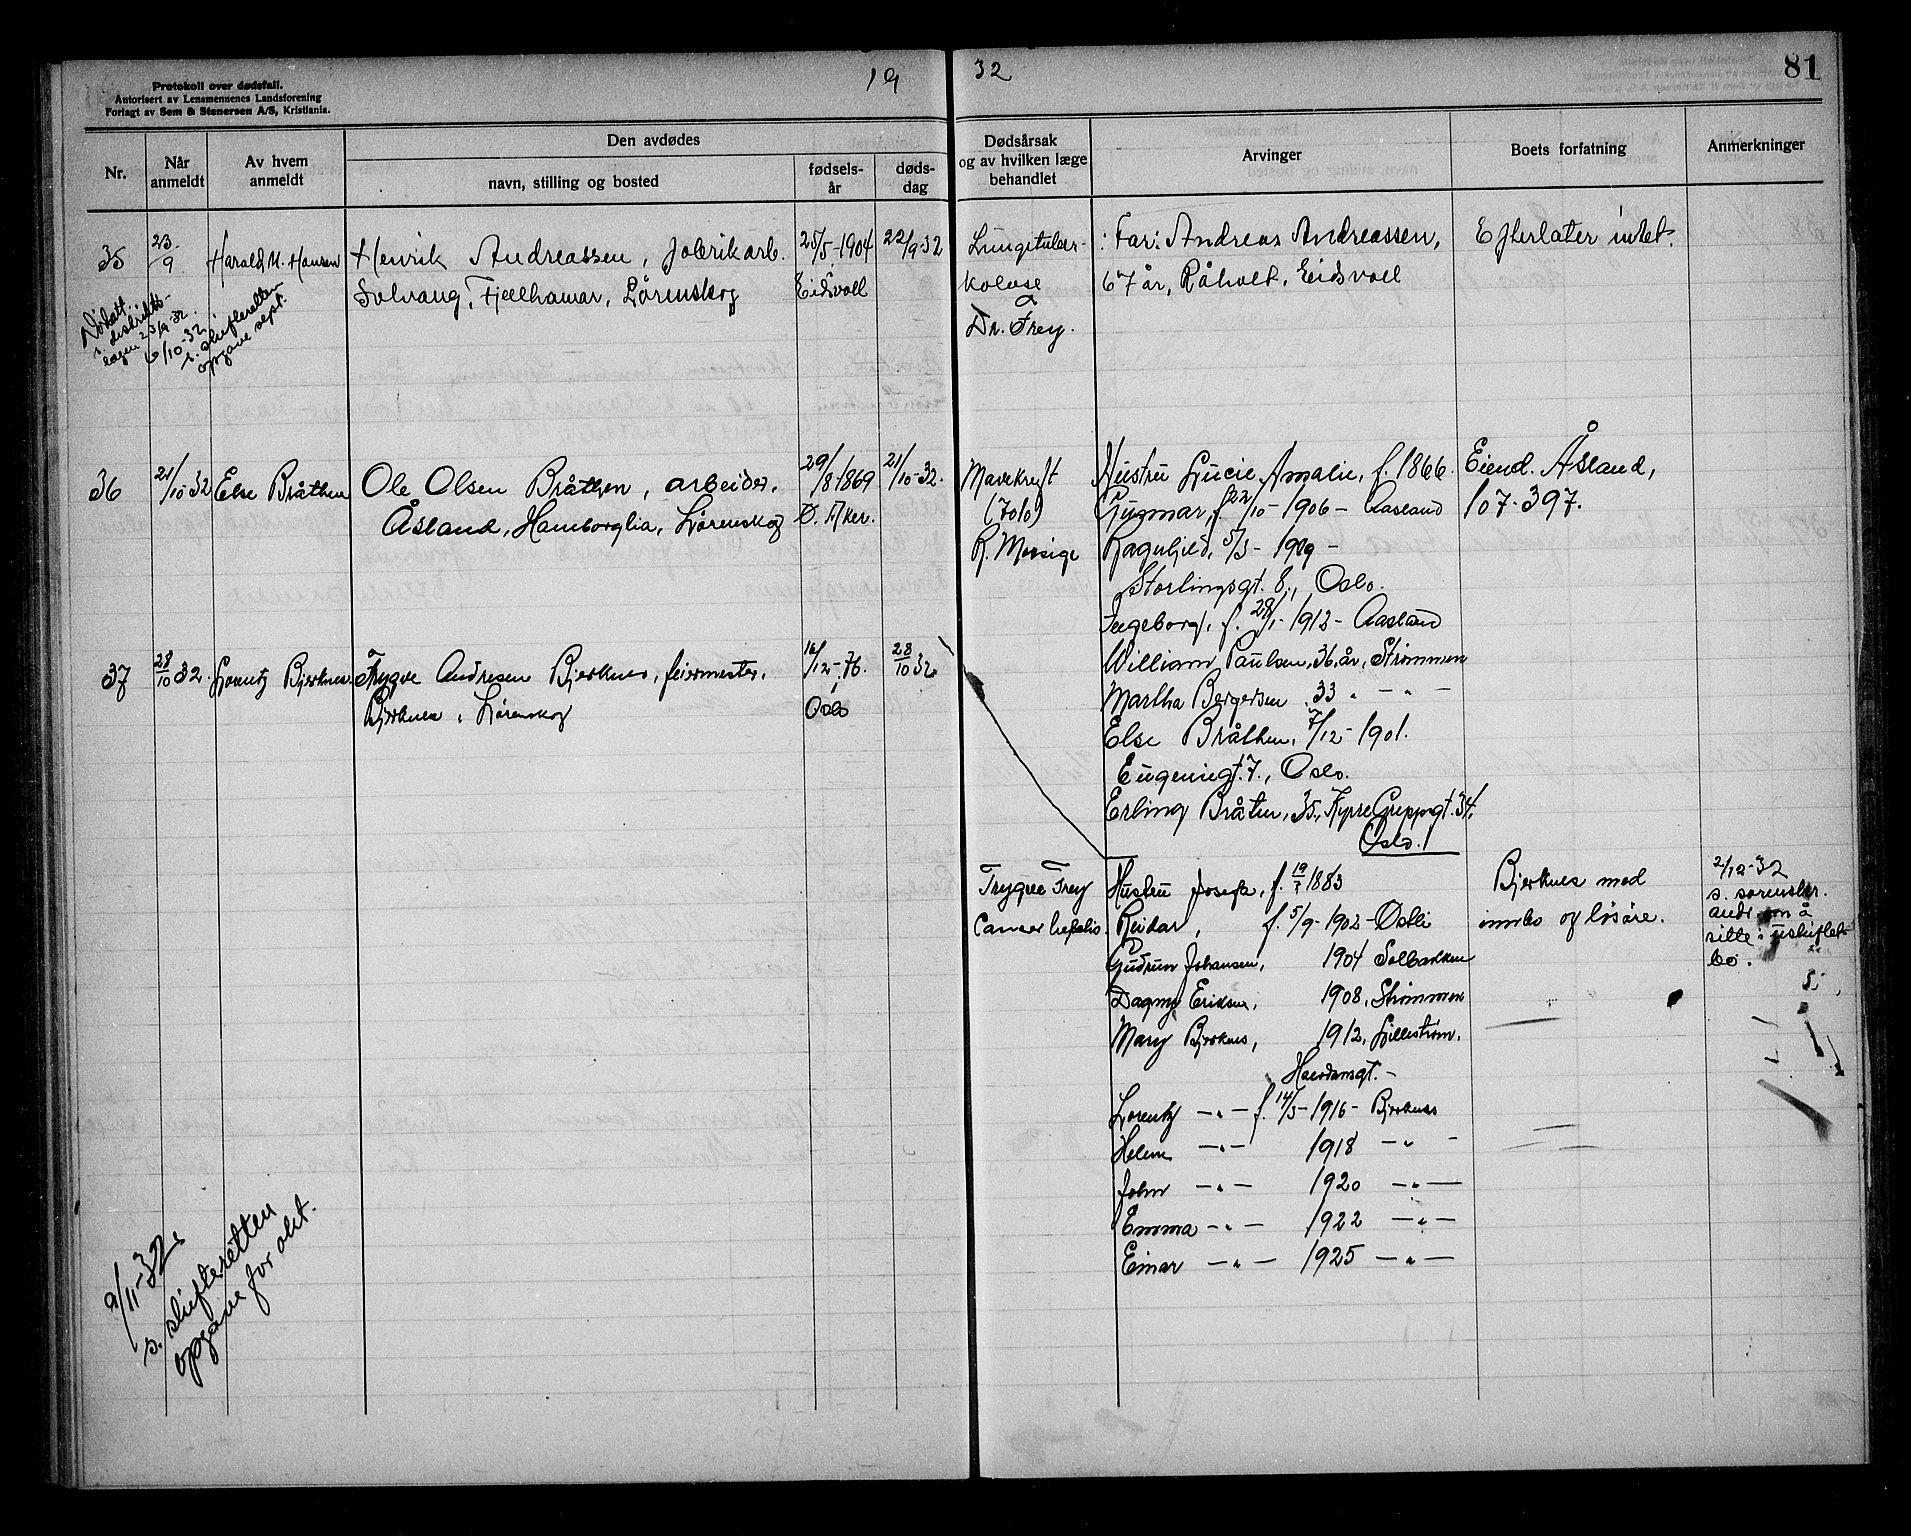 Protokoll over dødsfall.
Autorisert av Lensmennenes Landsforening
Forlagt av Sem & Stenersen A/S, Kristiania.
19 32
81
Nr.
Når anmeldt
Av hvem anmeldt
Den avdødes
navn, stilling og bosted
fødsels-år
døds-dag
Dødsårsak og av hvilken læge behandlet
Arvinger
Boets forfatning
Anmerkninger
35
23/9
Harald M. Hansen
Henrik Andreassen, fabrikarb.
Solvang, Fjellhamar, Lørenskog
25/5-1904
Eidsvoll
22/9-32
Lungetuber-
kolose
Dr. Frey.
Far: Andreas Andreassen,
67 år, Råholt, Eidsvoll
Efterlater intet.
23/9-32.
6/10-32
s. skifteretten
opgave sept.
36
21/10 32
Else Bråthen
Ole Olsen Bråthen, arbeider,
Åsland, Hamborglia, Lørenskog
29/8-1869
Ø. Aker.
21/10-32.
Mavekreft
R. Mossige
Hustru Lucie Amalie, f. 1866.
Gugmar, f. 22/10-1906- Aasland
Ragnhild, 5/3-1909-
Storlingsgt. 8., Oslo.
Ingeborg, f. 28/1-1912- Aasland
William Paulsen, 36 år, Strømmen
Martha Bergersen, 33 " - " -
Else Bråthen, 7/12-1901.
Eugeniegt. 7., Oslo.
Erling Bråten, 35,
Oslo.
Eiend. Åsland,
107-397.
37
28/10 32
Lorentz Bjerknes
Trygve Andresen Bjerknes, feiermester,
Bjerknes, Lørenskog
16/12-76.
Oslo
28/10 32
Trygve Frey
Cancer hepatis.
Hustru Josefa, f. 19/7 1883
Reidar, f. 5/9-1902-
Gudrun Johansen, 1904 Solbakken
Dagny Eriksen, 1908, Strømmen
Mary Bjerknes, 1912, Lillestrøm,
Lorentz -"- f. 14/5-1916- Bjerknes
Helene -"- 1918 -"-
John -"- 1920 -"-
Emma -"- 1922 -"-
Einar -"- 1925 -"-
Bjerknes med
innbo og løsøre.
2/12-32
s. sorenskr.
andr om å
sitte i uskiftet
bo.
9/11-32.
s. skifteretten
opgave for okt.